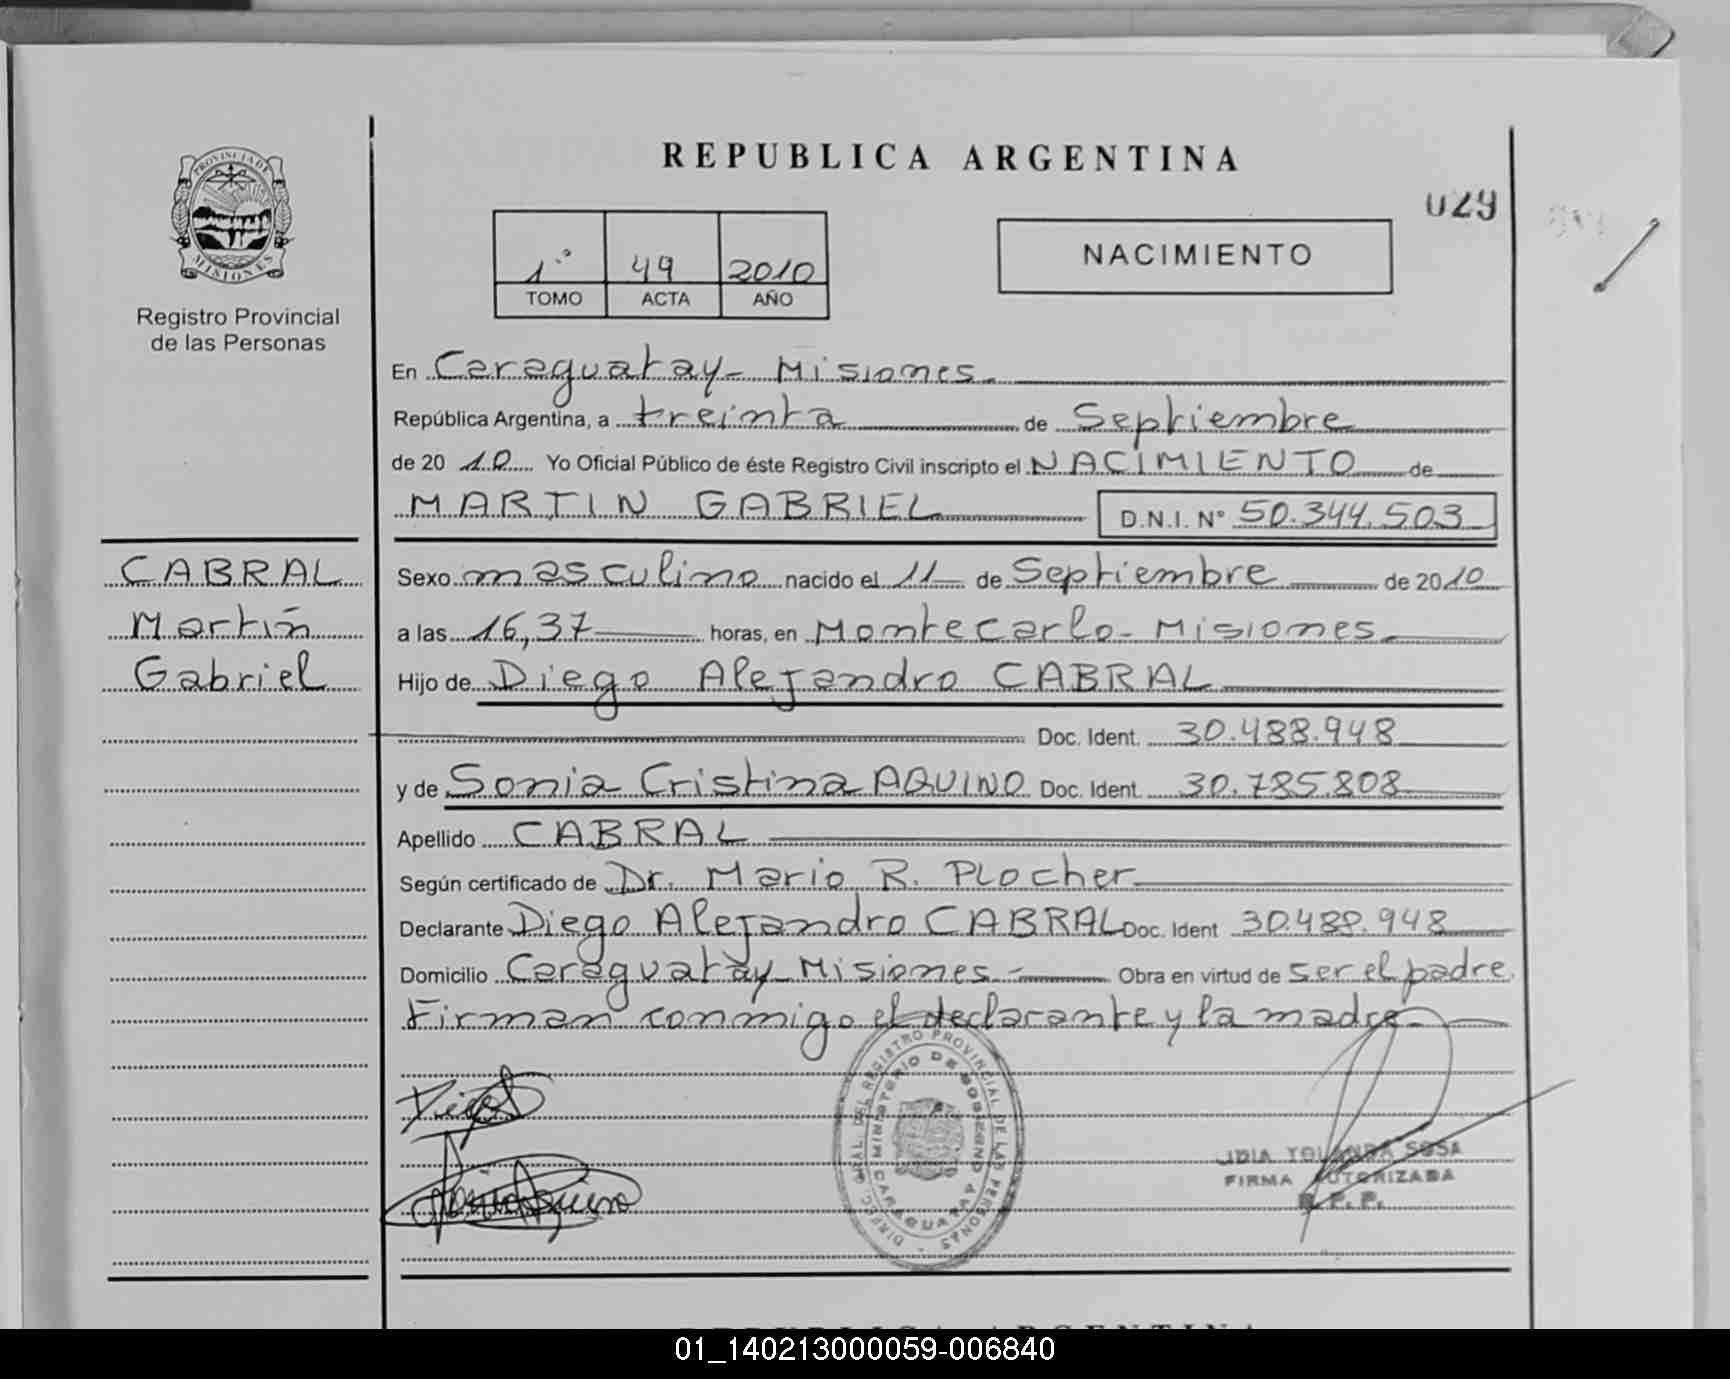 REPUBLICA ARGENTINA
029
PROVINCIA DE
MISIONES
Registro Provincial
de las Personas
1° 49 2010
TOMO ACTA AÑO
NACIMIENTO
En Caraguatay - Misiones.
República Argentina, a treinta de Septiembre
de 2010 Yo Oficial Público de éste Registro Civil inscripto el NACIMIENTO de
MARTIN GABRIEL D.N.I. N° 50.344.503
CABRAL
Martín
Gabriel
Sexo masculino nacido el 11 de Septiembre de 2010
a las 16,37 horas, en Montecarlo - Misiones.
Hijo de Diego Alejandro CABRAL
Doc. Ident. 30.488.948
y de Sonia Cristina AQUINO Doc. Ident. 30.785.808
Apellido CABRAL
Según certificado de Dr. Mario R. Plocher
Declarante Diego Alejandro CABRAL Doc. Ident 30.488.948
Domicilio Caraguatay - Misiones - Obra en virtud de ser el padre.
Firman conmigo el declarante y la madre.
DIREC. GRAL. DEL REGISTRO PROVINCIAL DE LAS PERSONAS
MINISTERIO DE GOBIERNO
CARAGUATAY
LIDIA YOLANDA SOSA
FIRMA AUTORIZADA
R. P. P.
REPUBLICA ARGENTINA
01_140213000059-006840